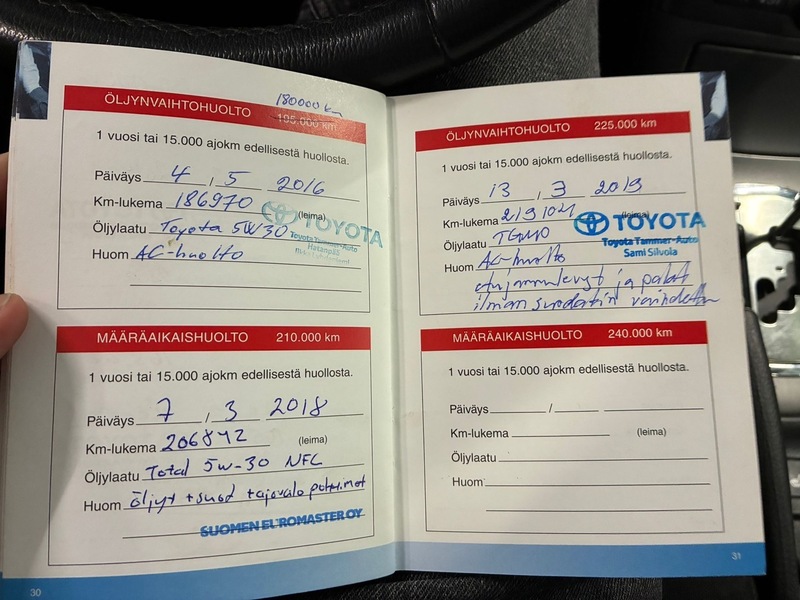 180000 km
ÖLJYNVAIHTOHUOLTO 195.000 km
1 vuosi tai 15.000 ajokm edellisestä huollosta.
Päiväys 4 / 5 2016
Km-lukema 186970 (leima)
TOYOTA
Öljylaatu Toyota 5W30
Toyota Tammer-Auto
Hatanpää
Huom AC-huolto
MÄÄRÄAIKAISHUOLTO 210.000 km
1 vuosi tai 15.000 ajokm edellisestä huollosta.
Päiväys 7 / 3 2018
Km-lukema 206842 (leima)
Öljylaatu Total 5w-30 NFC
Huom öljyt + suod + ajovalo polttimot
SUOMEN EUROMASTER OY
30
ÖLJYNVAIHTOHUOLTO 225.000 km
1 vuosi tai 15.000 ajokm edellisestä huollosta.
Päiväys 13 / 3 2019
Km-lukema (leima)
TOYOTA
Öljylaatu
Toyota Tammer-Auto
Sami Silvola
Huom AC-huolto
etujarrulevyt ja palat
ilman suodatin vaihdettu
MÄÄRÄAIKAISHUOLTO 240.000 km
1 vuosi tai 15.000 ajokm edellisestä huollosta.
Päiväys /
Km-lukema (leima)
Öljylaatu
Huom
31